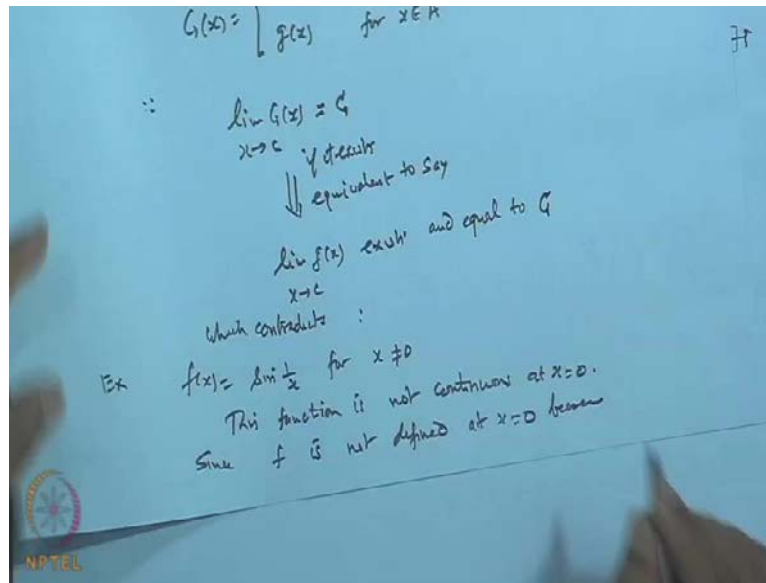 G(x) = { g(x) for x ∈ A
∵ lim G(x) = G
x→c if it exists
⇓ equivalent to say
lim g(x) exists and equal to G
x→c
which contradicts :
Ex f(x) = Sin 1/x for x ≠ 0
This function is not continuous at x=0.
Since f is not defined at x=0 because
NPTEL